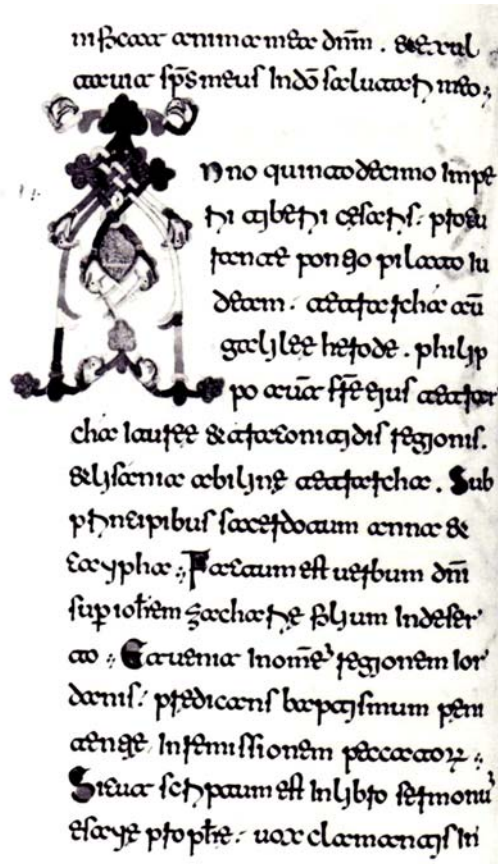 nificat anima mea dnm̄ . & exul
tauit sps̄ meus Indō salutari meo ;
Anno quintodecimo Impe
rii tiberii cesaris : procu
rante pontio pilato iu
deam . tetrarcha aū
galilee herode . philip
po aūt frē eius tetrar
cha ituree & atraconitidis regionis .
& lisania abiline tetrarcha . Sub
principibus sacerdotum anna &
caypha ; Factum est uerbum dn̄i
sup ioh̄em zacharie filium Indeser
to ; Et uenit Inom̄e regionem ior
danis : predicans baptismum peni
tentie Inremissionem peccatoꝝ ;
Sicut scriptum est Inlibro sermonū
esaye proph̄e : uox clamantis In